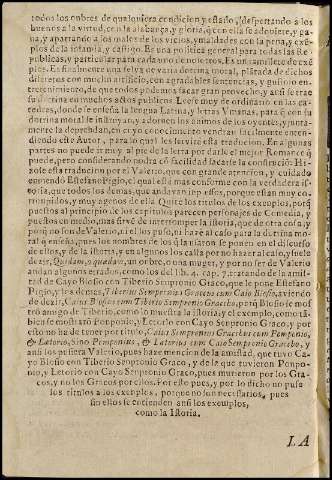 todos los onbres de qualquiera condicion y estado, despertando a los
buenos a la virtud, con la alabança, y gloria, que en ella se adquiere, y ga-
na, y apartando a los malos de los vicios, y maldades con la pena, y exē-
plos de la infamia, y castigo. Es una politica general para todas las Re-
publicas, y particular para cada uno de nosotros. Es un ramillete de exē-
plos. Es finalmente una selva de varia dotrina moral, plātada de dichos
diferentes con mucho artificio, con agradables sentencias, y gustoso en-
tretenimiento, de que todos podemos sacar gran provecho, assi se trae
su dotrina en muchos actos publicos. Leese muy de ordinario en las ca-
tredas, donde se enseña la lengua Latina, y letras Vmanas, para que con su
dotrina moral se instruyan, y adornen los animos de los oyentes, y junta-
mente la deprendan, en cuyo conocimiento vendran facilmente enten-
diendo este Autor, para lo qual les servira esta traducion. En algunas
partes no puede ir muy al pie de la letra por darle el mejor Romance q̄
puede, pero considerando podra cō facilidad sacarse la construciō. Hi-
zose esta traducion por el Valerio, que con grande atencion, y cuidado
enmendò Estefano Pigio, el qual està mas conforme con la verdadera is-
toria, que todos los demas, que andavan inpressos, porque estan muy co-
rrompidos, y muy agenos de ella. Quitè los titulos de los exemplos, porq̄
puestos al principio de los capitulos parecen personajes de Comedia, y
puestos en medio, mas sirvē de interromper la istoria, que de otra cosa, y
porq̄ no son de Valerio, ni el los puso, ni hazē al caso para la dotrina mo-
ral q̄ enseña, pues los nombres de los q̄ la usaron se ponen en el discurso
de ellos, y de la istoria, y en algunos les calla por no hazer al caso, y suele
dezir, Quidam, o quædam, un onbre, o una muger, y por no ser de Valerio
andan algunos errados, como los del lib. 4. cap. 7. tratando de la amis-
tad de Cayo Blosio con Tiberio Senpronio Graco, que le pone Estefano
Pigio, y los demas, Tiberius Sempronius Gracchus cum Caio Blosio, aviendo
de dezir, Caius Blosius cum Tiberio Sempronio Graccho, porq̄ Blosio se mos
trò amigo de Tiberio, como lo muestra la istoria; y el exemplo, como tā-
bien se mostraron Ponponio, y Letorio con Cayo Senpronio Graco, y por
esto no ha de tener por titulo, Caius Sempronius Gracchus cum Pomponio,
& Lætorio, Sino Pomponius, & Lætorius cum Caio Sempronio Graccho, y
ansi los pusiera Valerio, pues haze mencion de la amistad, que tuvo Ca-
yo Blosio con Tiberio Senpronio Graco, y de la que tuvieron Ponpo-
nio, y Letorio con Cayo Senpronio Graco, pues murieron por los Gra-
cos, y no los Gracos por ellos. Por esto pues, y por lo dicho no puse
los titulos a los exemplos, porque no son necessarios, pues
sin ellos se entienden ansi los exemplos,
como la istoria.
LA